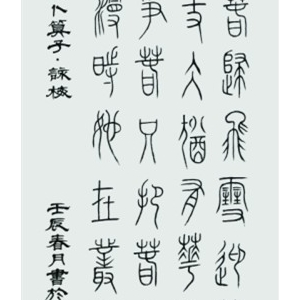 春歸飛雪迎
丈仌猶有華
爭春只把春
漫時她在叢
卜算子·詠梅 壬辰春月書於